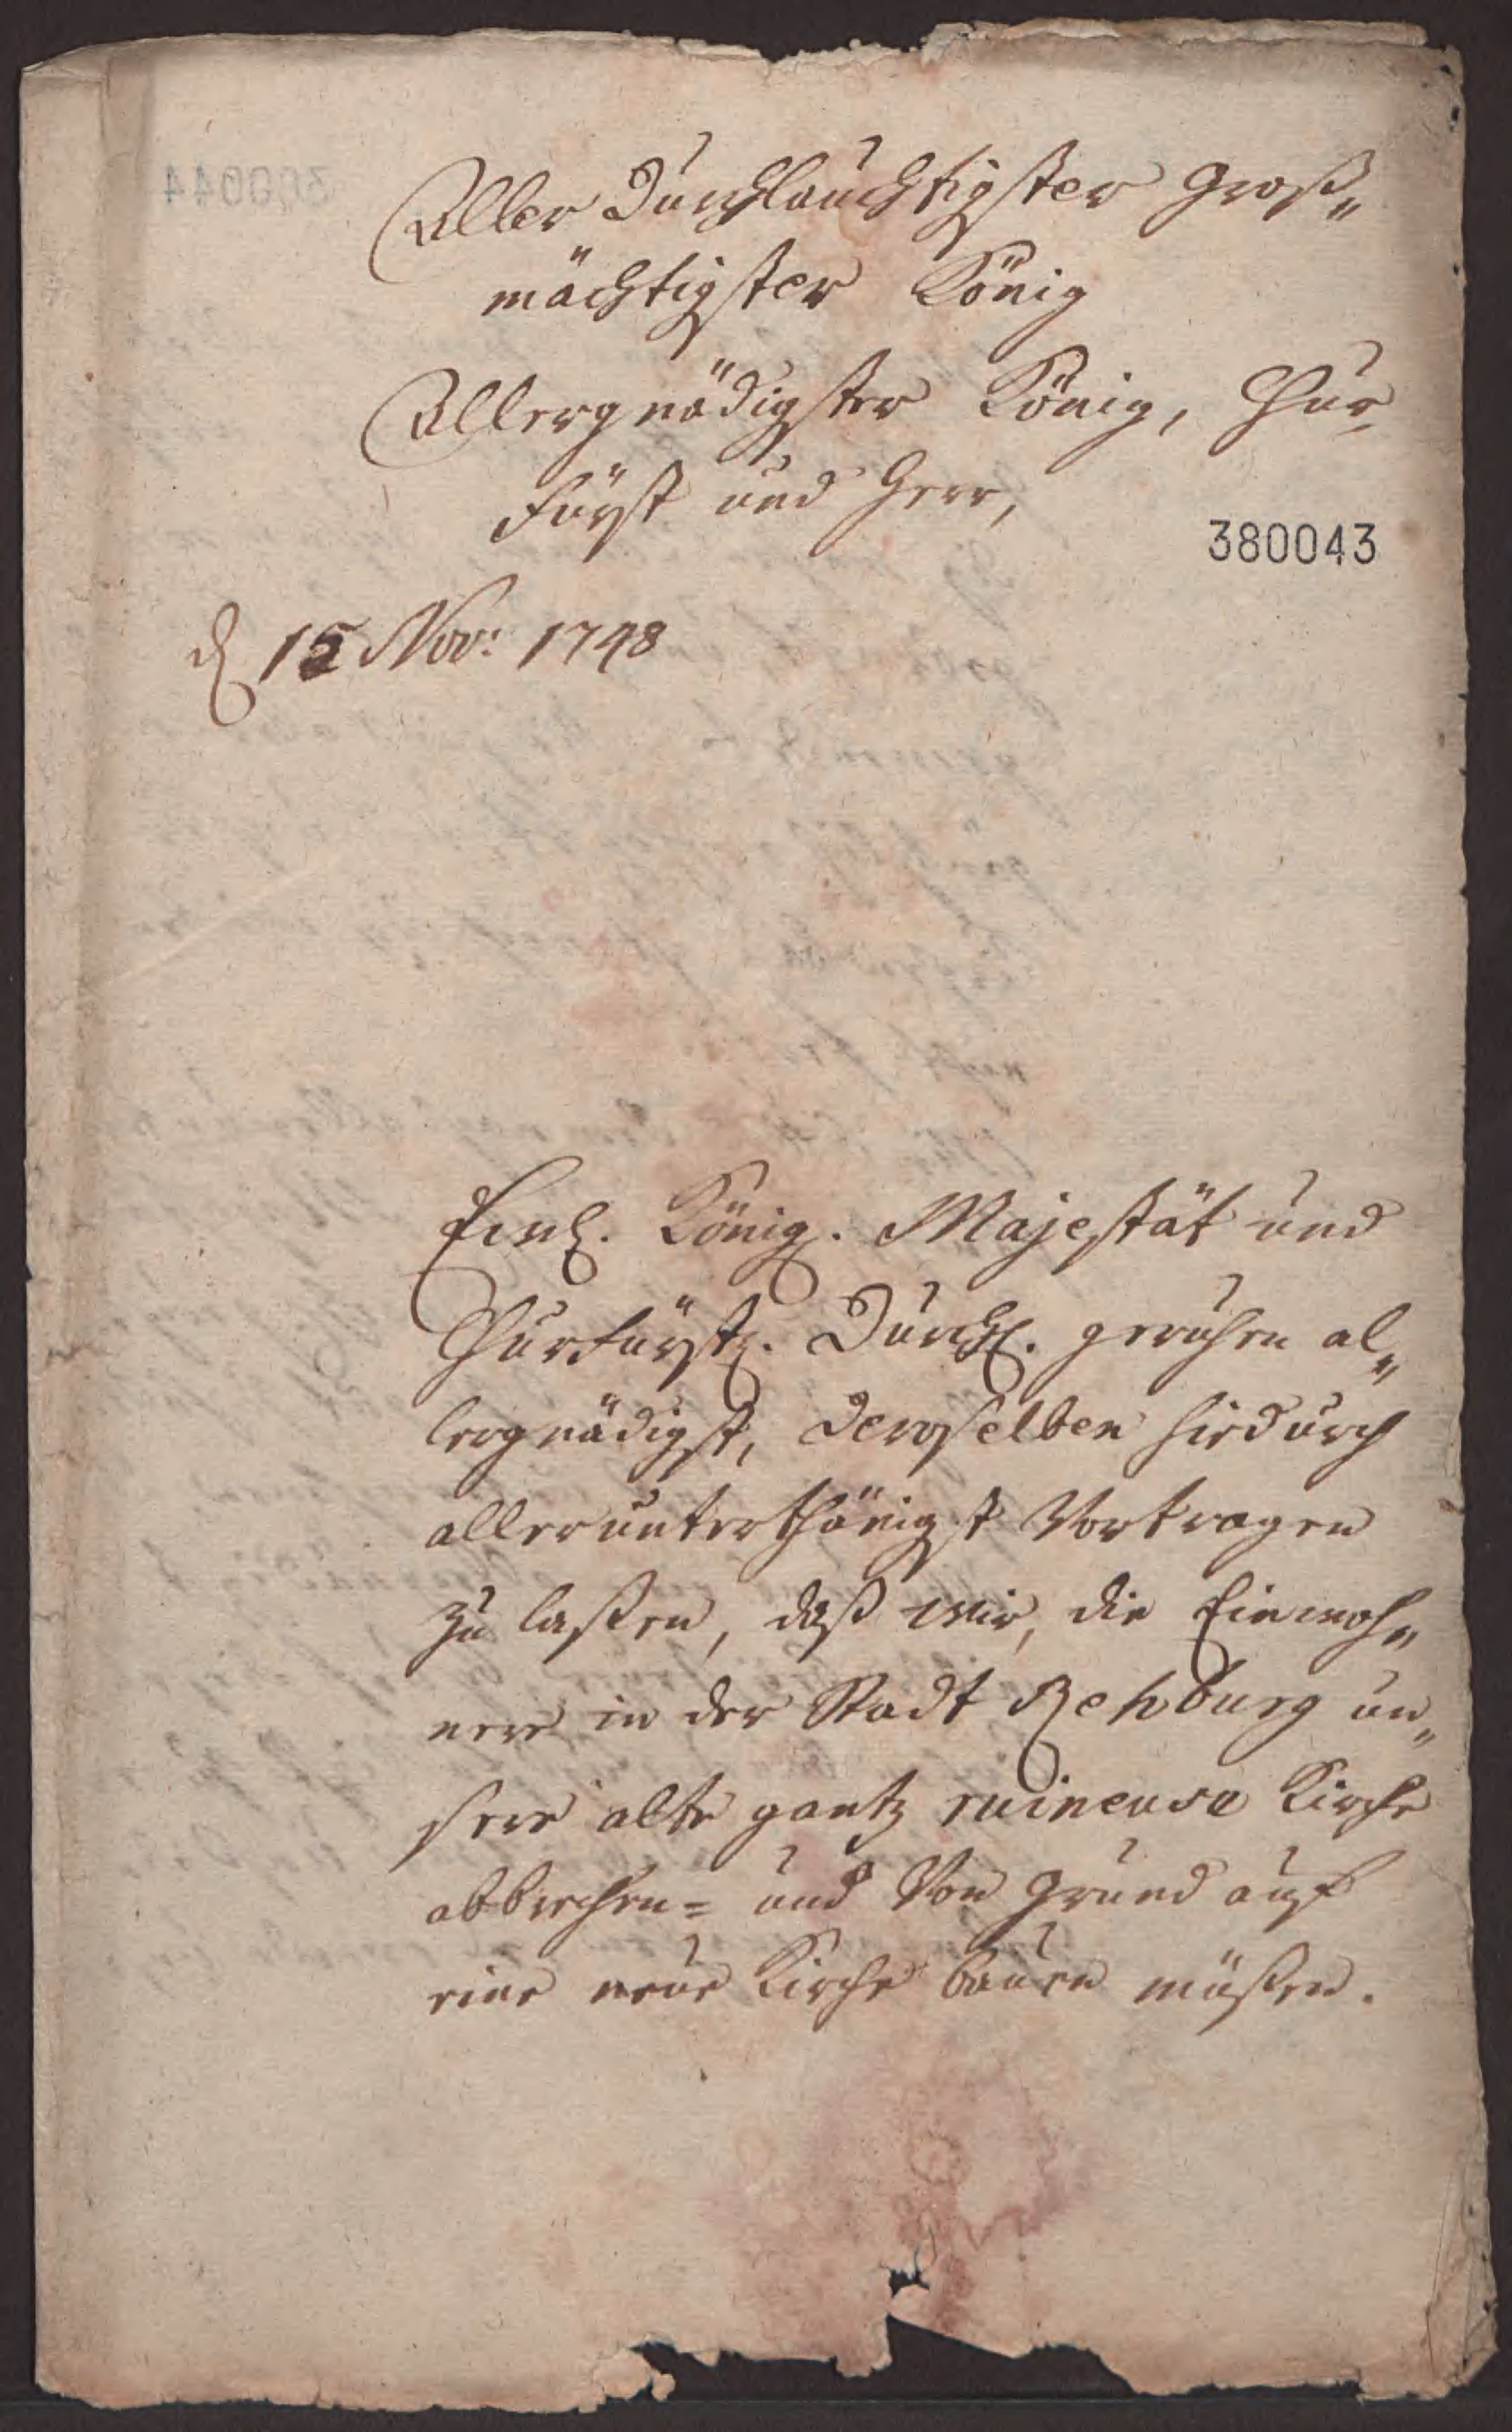 Aller Durchlauchtigster Groß„
mächtigster König
Allergnädigster König, Chur„
fürst und Herr,
380043
d 15 Nov: 1748
Ew. König. Majestät und
Churfürstl. Durchl. geruhen al„
lergnädigst, Deroselben hiedurch
allerunterthänigst Vortragen
zu laßen, daß wir, die Einwoh„
nere in der Stadt Rehburg un„
sere alte gantz ruineuse Kirche
abbrechen= und Von Grund auf
eine neue Kirche bauen müßen.